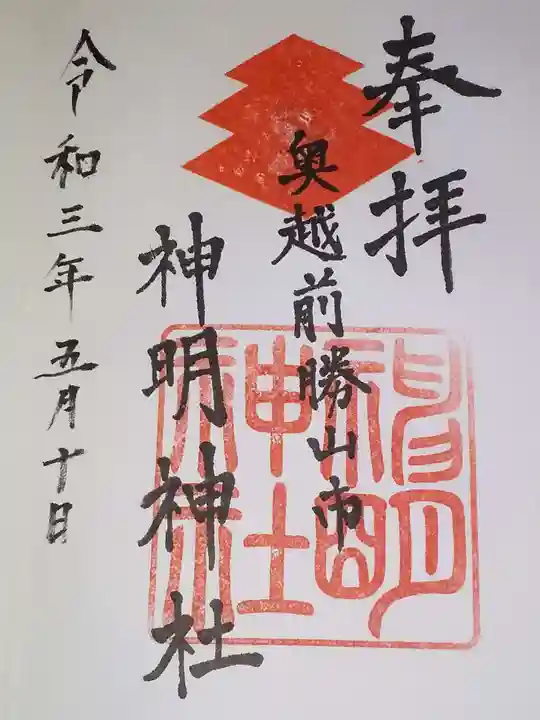 奉拝
奥越前勝山市
神明神社
令和三年五月十日
神明神社